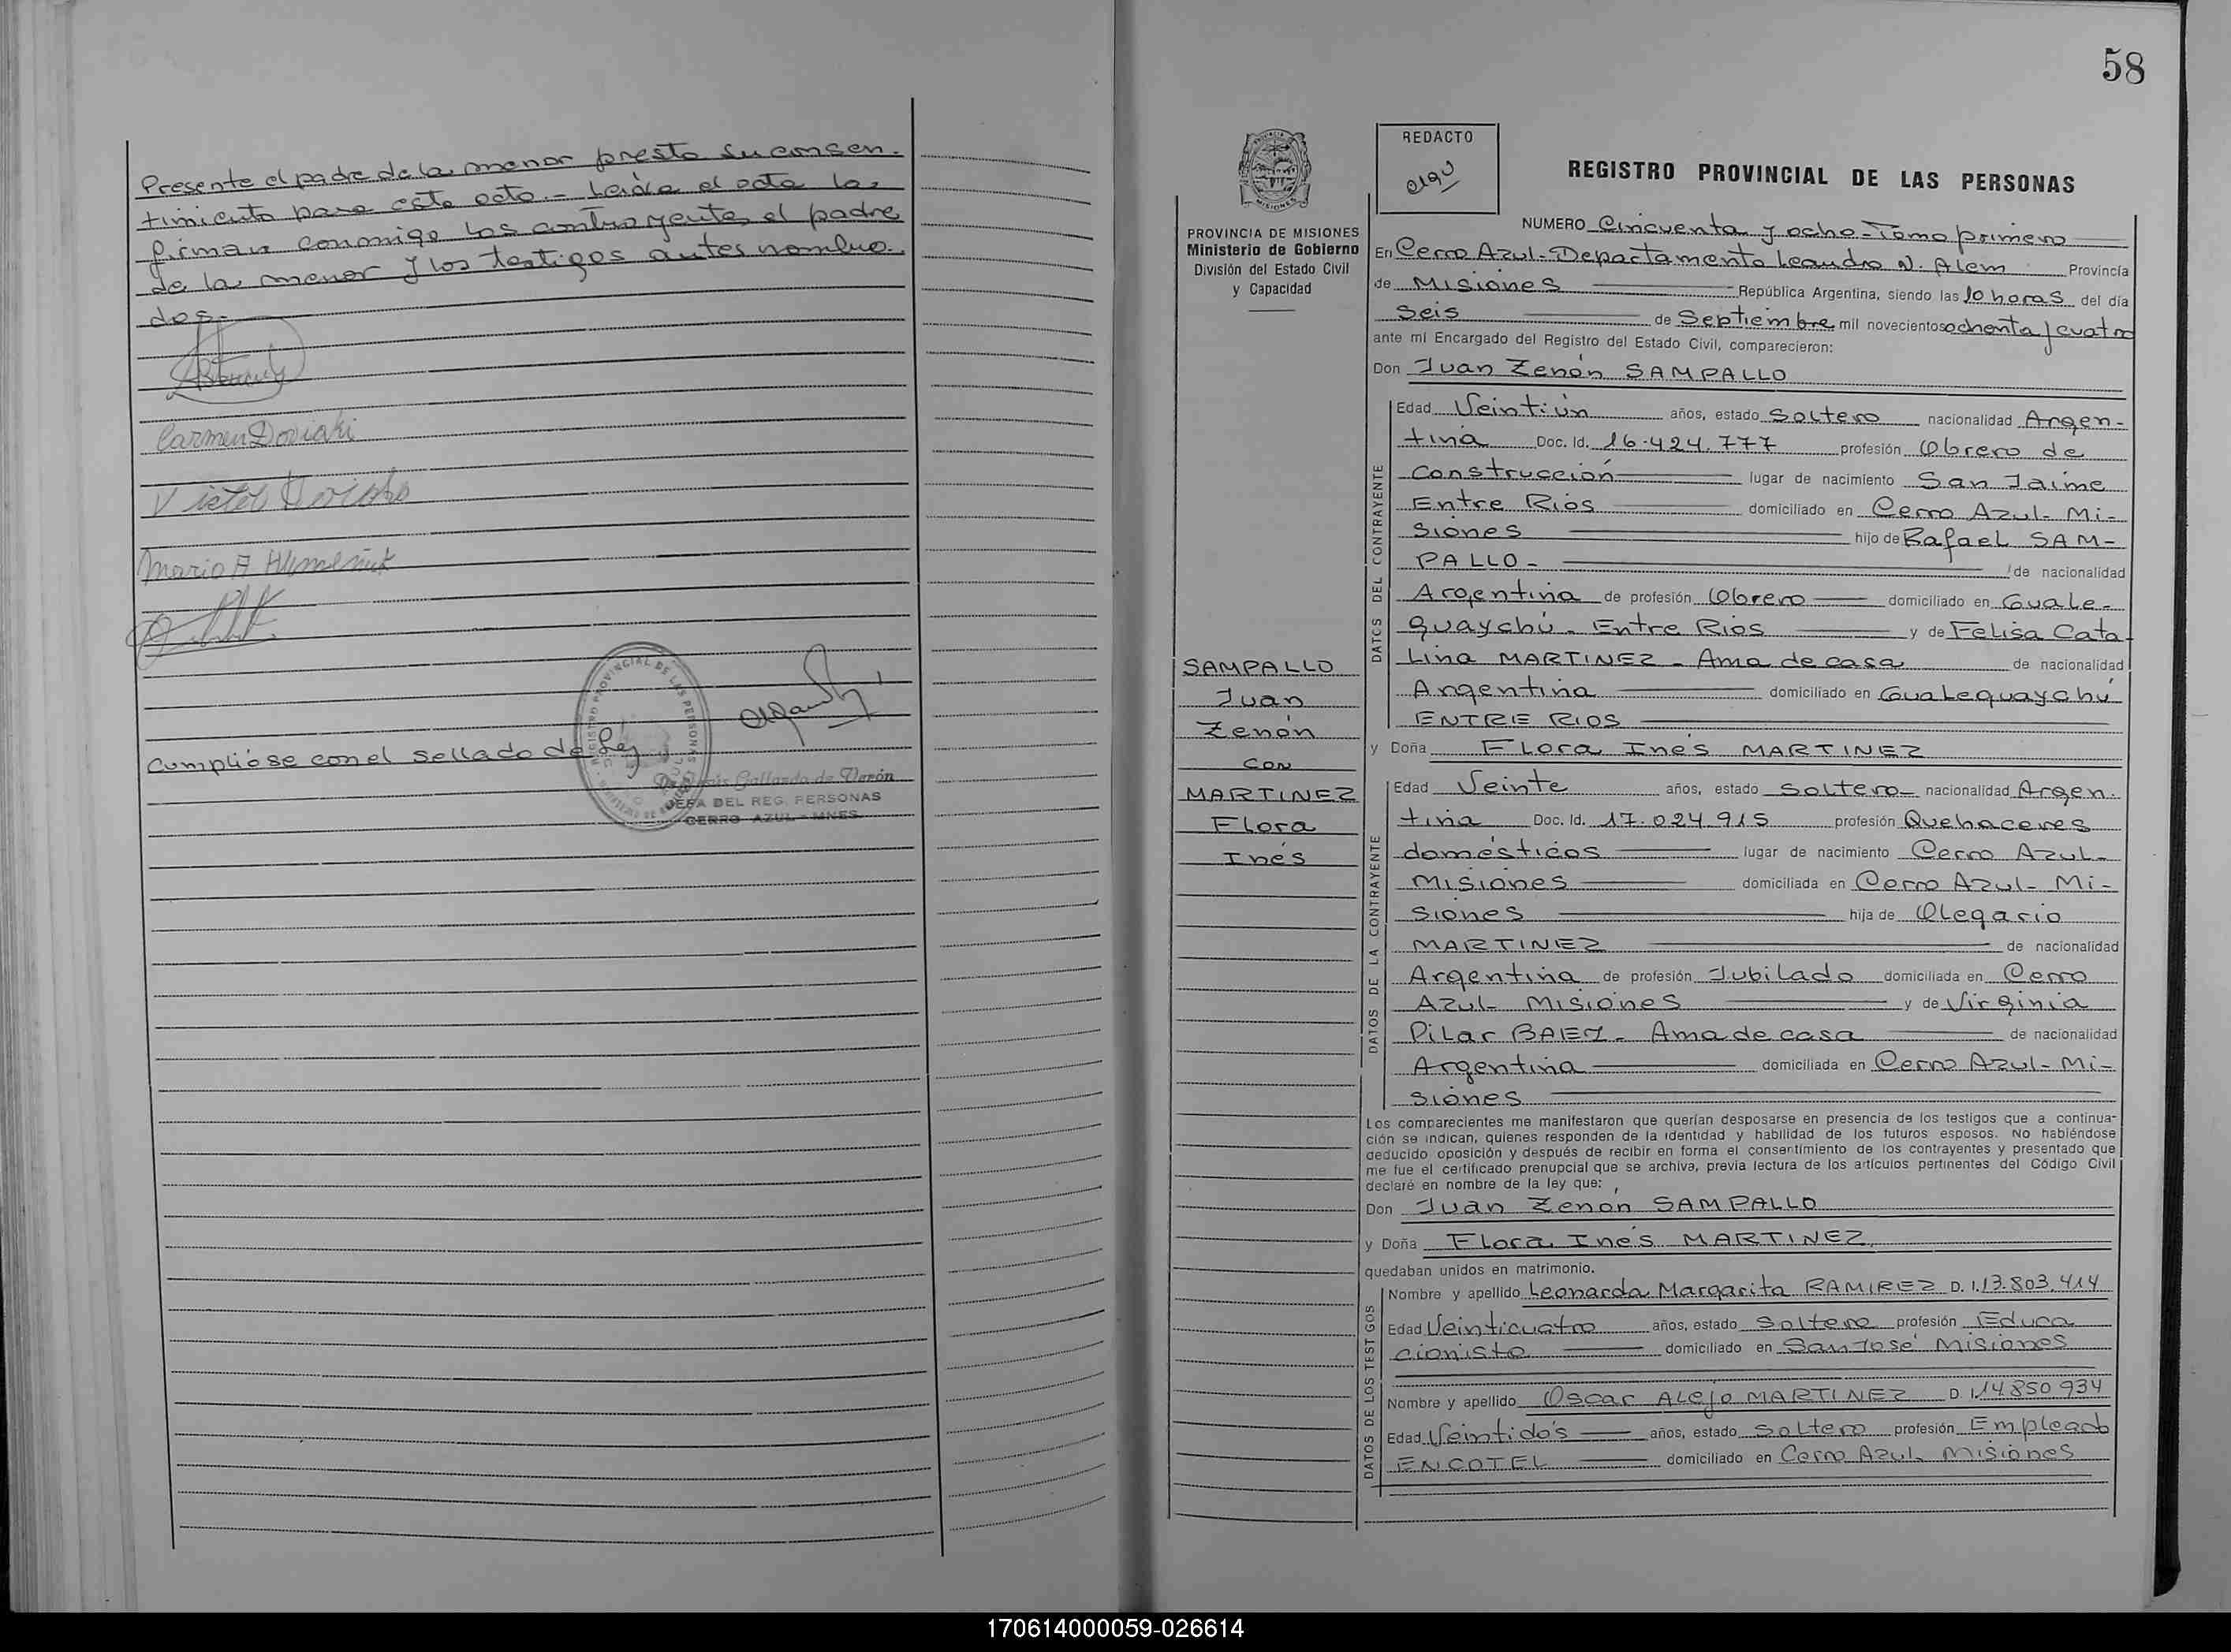 Presente el padre de la menor presta su consen-
timiento para este acto.- Leída el acta la
firman conmigo los contrayentes el padre
de la menor y los testigos antes nombra-
dos.-
Carmen Doviaki
Victor
Mario A
Cumplióse con el sellado de Ley
Gallardo de Verón
JEFA DEL REG. PERSONAS
CERRO AZUL - MNES.
58
PROVINCIA DE MISIONES
Ministerio de Gobierno
División del Estado Civil
y Capacidad
SAMPALLO
Juan
Zenón
con
MARTINEZ
Flora
Inés
REDACTO
REGISTRO PROVINCIAL DE LAS PERSONAS
NUMERO Cincuenta y ocho - Tomo primero
En Cerro Azul - Departamento Leandro N. Alem Provincia
de Misiones República Argentina, siendo las 10 horas del día
Seis de Septiembre mil novecientos ochenta y cuatro
ante mí Encargado del Registro del Estado Civil, comparecieron:
Don Juan Zenón SAMPALLO
DATOS DEL CONTRAYENTE
Edad Veintiún años, estado Soltero nacionalidad Argen-
tina Doc. Id. 16.424.777 profesión Obrero de
Construcción lugar de nacimiento San Jaime
Entre Rios domiciliado en Cerro Azul- Mi-
siones hijo de Rafael SAM-
PALLO- de nacionalidad
Argentina de profesión Obrero domiciliado en Guale-
guaychú - Entre Rios y de Felisa Cata
lina MARTINEZ - Ama de casa de nacionalidad
Argentina domiciliado en Gualeguaychú
ENTRE RIOS
y Doña Flora Inés MARTINEZ
DATOS DE LA CONTRAYENTE
Edad Veinte años, estado Soltera nacionalidad Argen-
tina Doc. Id. 17.024.915 profesión Quehaceres
domésticos lugar de nacimiento Cerro Azul-
Misiones domiciliada en Cerro Azul- Mi-
siones hija de Olegario
MARTINEZ de nacionalidad
Argentina de profesión Jubilado domiciliada en Cerro
Azul- Misiones y de Virginia
Pilar BAEZ - Ama de casa de nacionalidad
Argentina domiciliada en Cerro Azul- Mi-
siones
Los comparecientes me manifestaron que querían desposarse en presencia de los testigos que a continua-
ción se indican, quienes responden de la identidad y habilidad de los futuros esposos. No habiéndose
deducido oposición y después de recibir en forma el consentimiento de los contrayentes y presentado que
me fue el certificado prenupcial que se archiva, previa lectura de los artículos pertinentes del Código Civil
declaré en nombre de la ley que:
Don Juan Zenón SAMPALLO
y Doña Flora Inés MARTINEZ
quedaban unidos en matrimonio.
DATOS DE LOS TESTIGOS
Nombre y apellido Leonarda Margarita RAMIREZ D. I. 13.803.414
Edad Veinticuatro años, estado Soltera profesión Educa
cionista domiciliado en San José Misiones
Nombre y apellido Oscar Alejo MARTINEZ D. I. 14 850 934
Edad Veintidós años, estado Soltero profesión Empleado
ENCOTEL domiciliado en Cerro Azul, Misiones
170614000059-026614